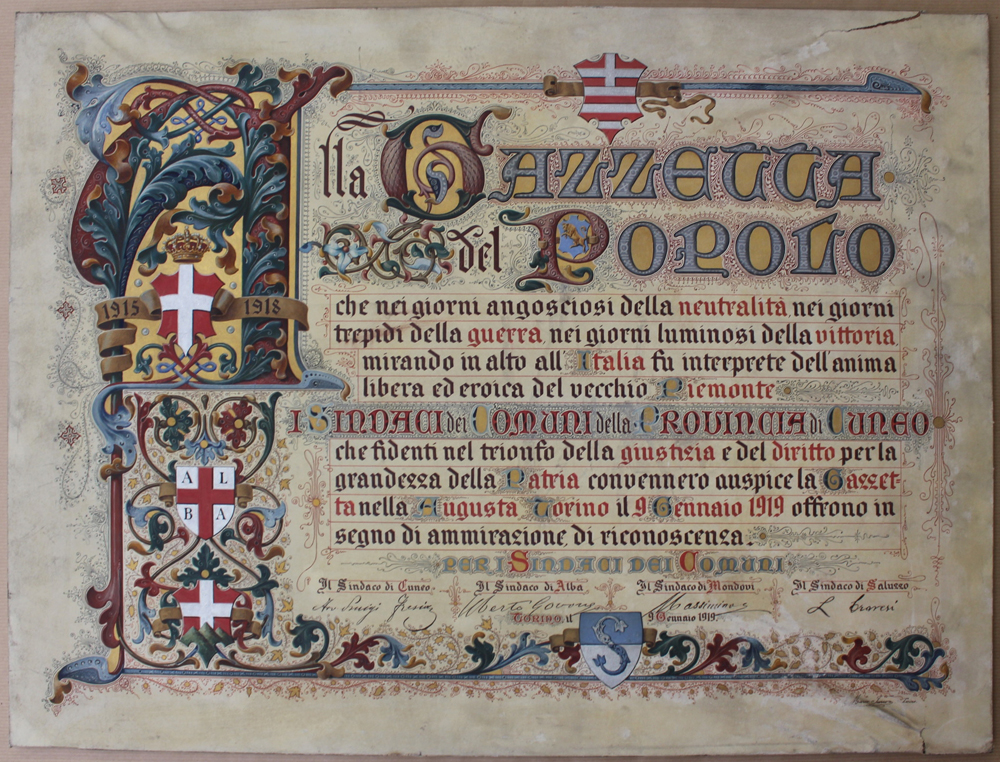 Alla Gazzetta
del Popolo
1915 1918
che nei giorni angosciosi della neutralità, nei giorni
trepidi della guerra, nei giorni luminosi della vittoria,
mirando in alto all'Italia fu interprete dell'anima
libera ed eroica del vecchio Piemonte
I Sindaci dei Comuni della Provincia di Cuneo
che fidenti nel trionfo della giustizia e del diritto per la
grandezza della Patria convennero auspice la Gazzet-
ta nella Augusta Torino il 9 Gennaio 1919 offrono in
segno di ammirazione, di riconoscenza.
A L
B A
PER I SINDACI DEI COMUNI
Il Sindaco di Cuneo Il Sindaco di Alba Il Sindaco di Mondovì Il Sindaco di Saluzzo
Alberto Massimino
TORINO, il 9 Gennaio 1919.
S